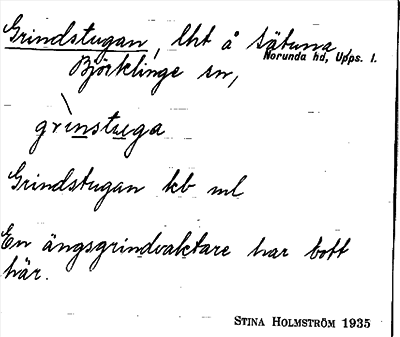 Grindstugan, lht å Sätuna
Norunda hd, Upps. l.
Björklinge sn,
grinstuga
Grindstugan kb ml
En ängsgrindvaktare har bott
här.
STINA HOLMSTRÖM 1935